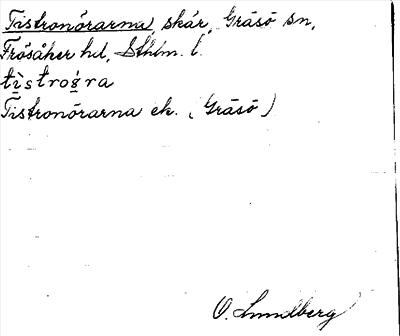 Tistronörarna, skär, Gräsö sn,
Frösåker hd, Sthlm. l.
tìstrogra
Tistronörarna ek. (Gräsö)
O. Lundberg